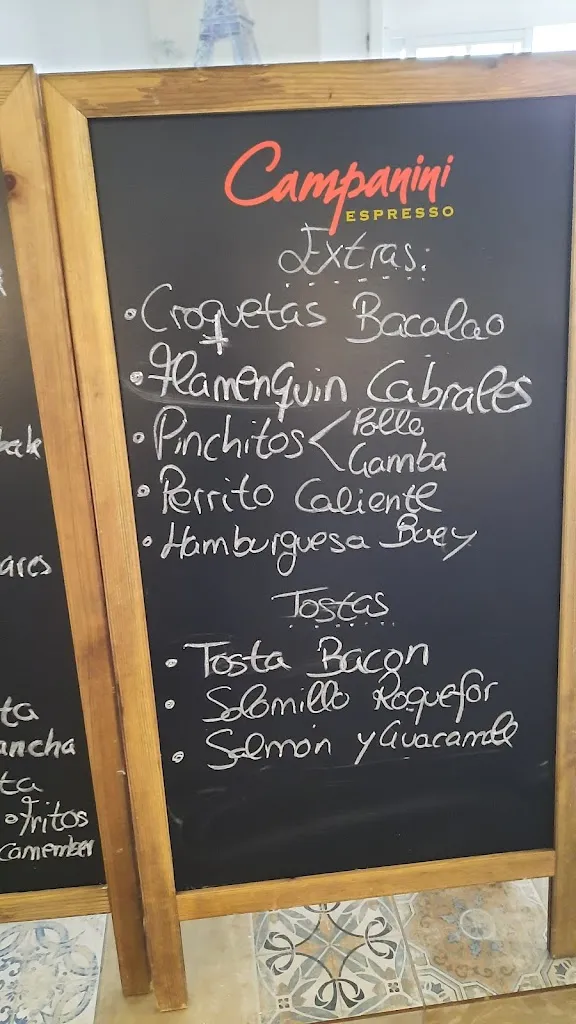 Campanini
ESPRESSO
Extras:
• Croquetas Bacalao
• Flamenquin Cabrales
• Pinchitos < Pollo
Gamba
• Perrito Caliente
• Hamburguesa Buey
Tostas
• Tosta Bacon
• Solomillo Roquefor
• Salmón y Guacamole
ares
ta
ancha
ta
• Fritos
Camember